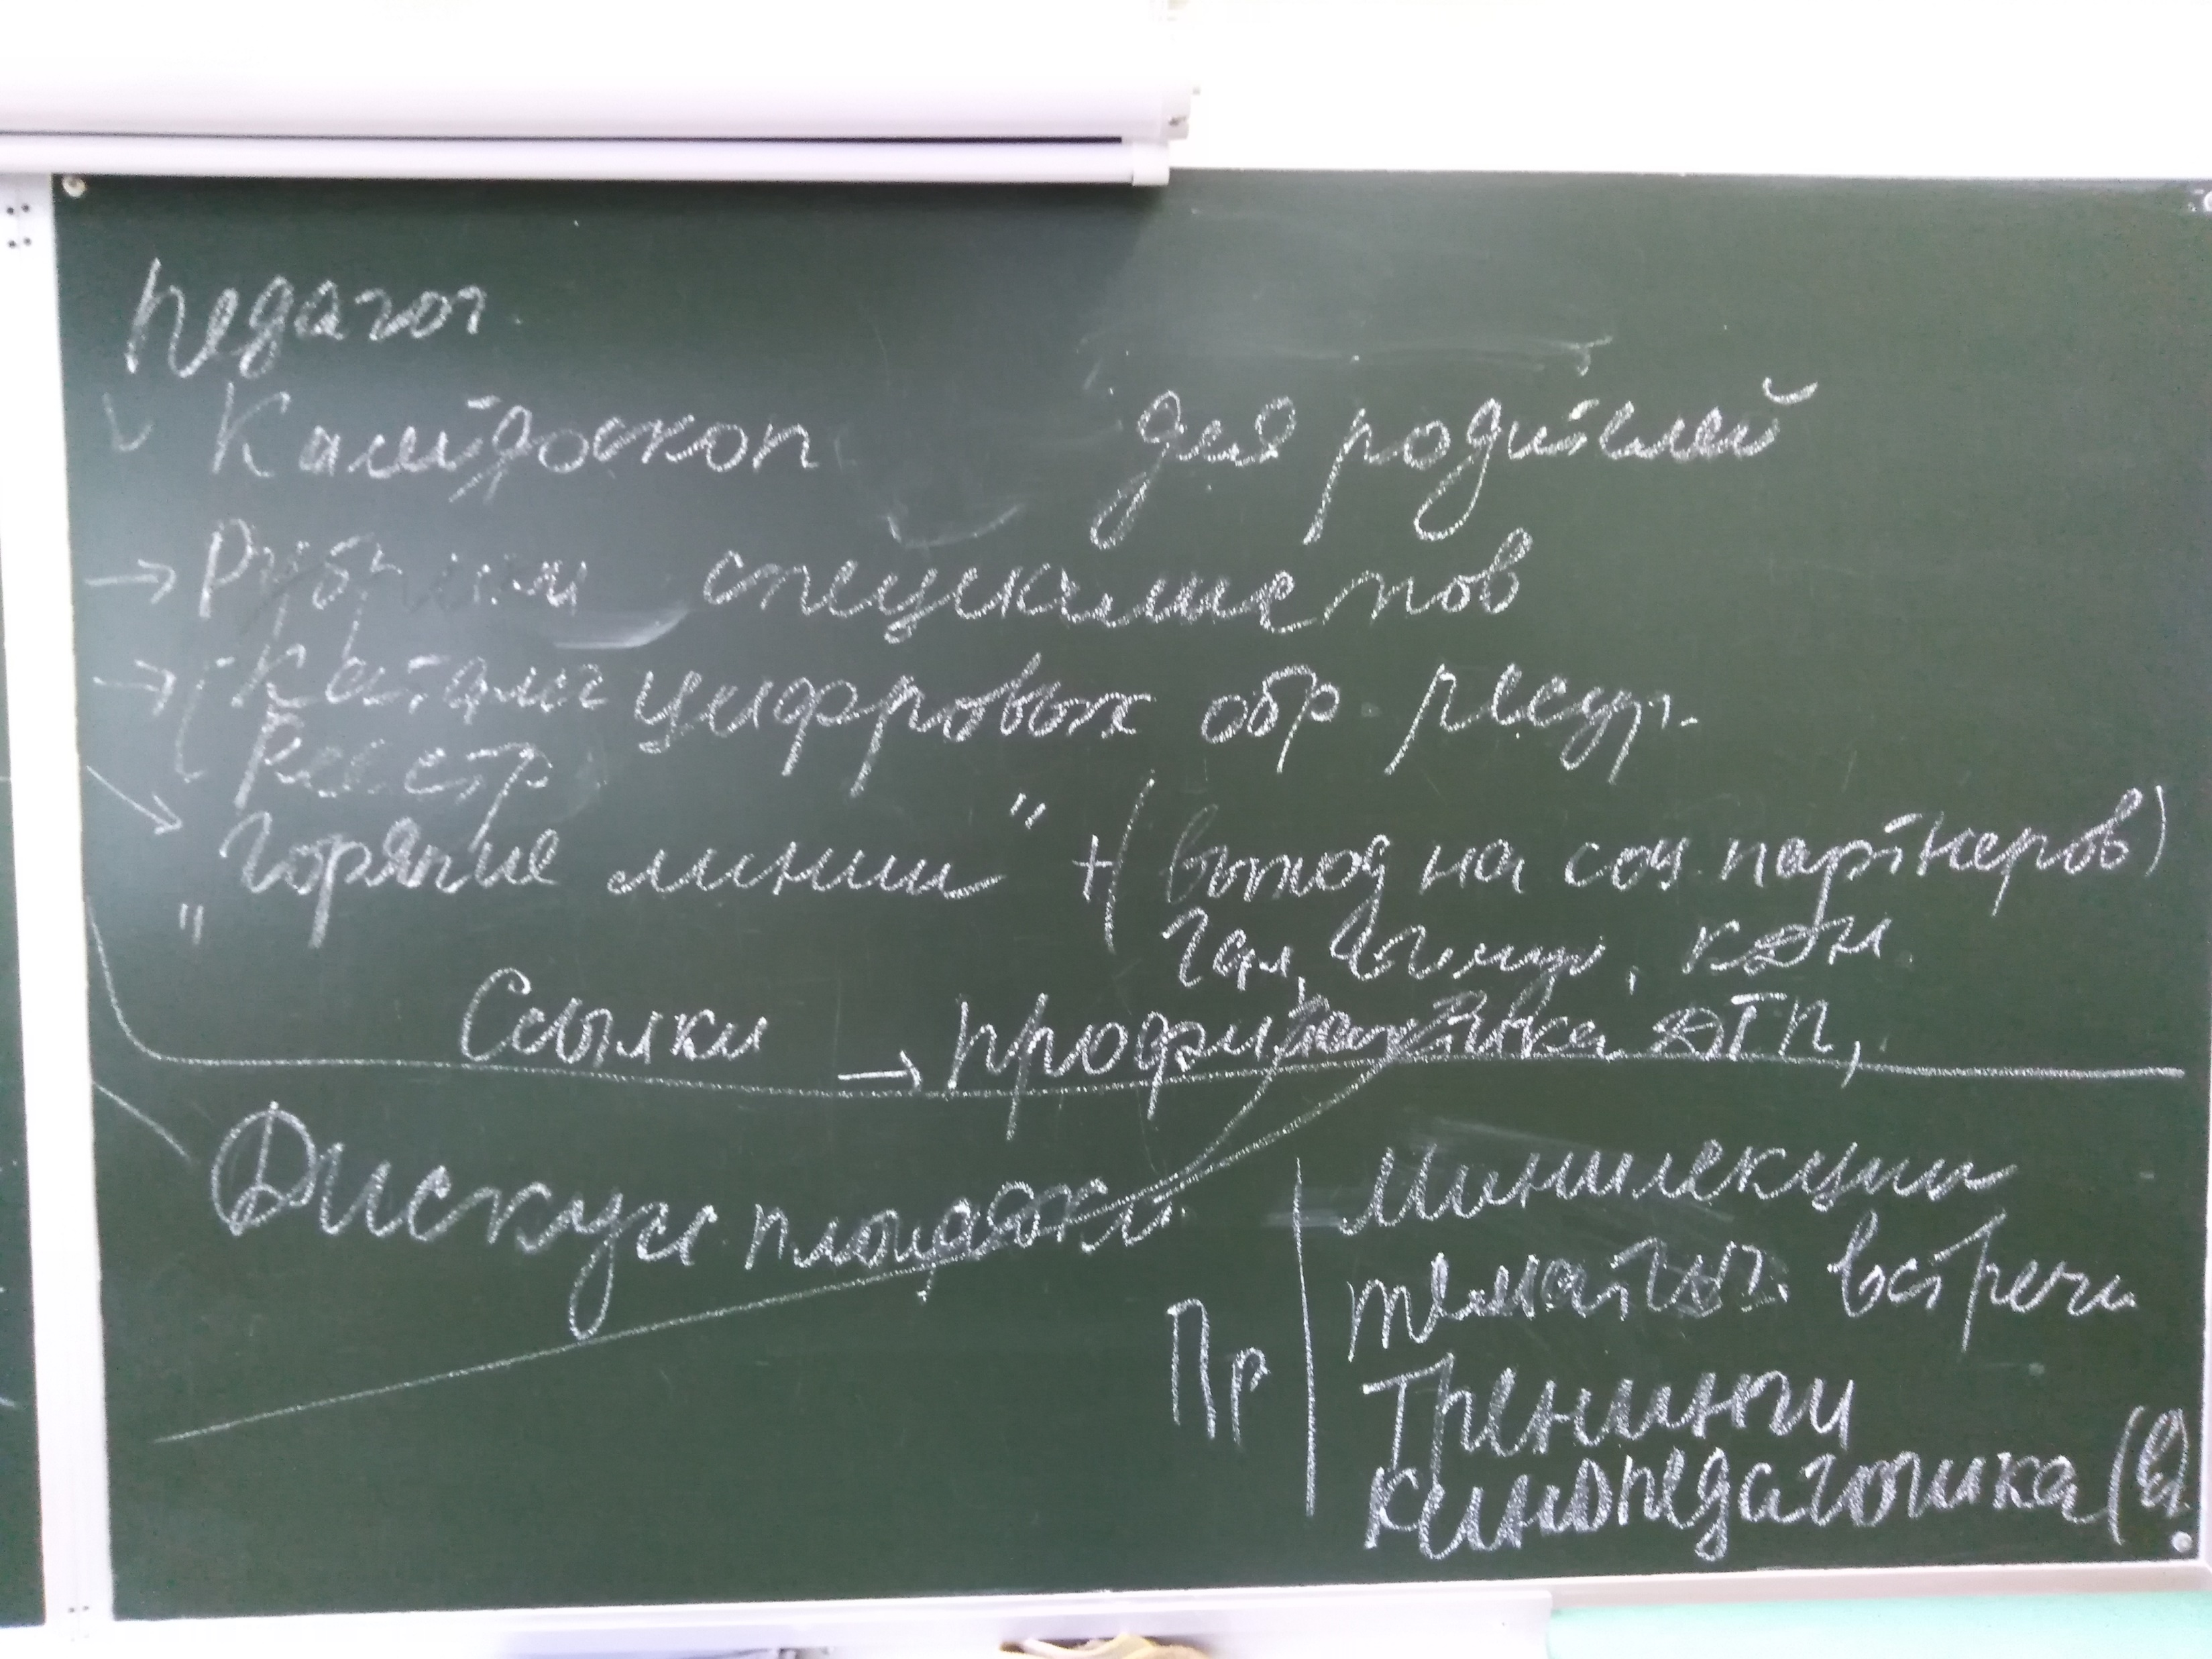 Педагог.
Калейдоскоп для родителей
→ Рубрики специалистов
→ Каталог цифровых обр. ресур.
Реестр
"Горячие линии" + (выход на соц. партнеров)
КДН
Ссылки → профилактика ДТП,
Дискус. площадки.
Минилекции
тематич. встречи
Пр
Тренинги
кинопедагогика (